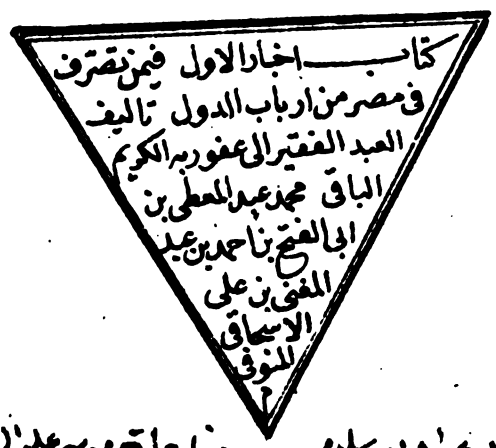 كتاب اخبار الاول فيمن تصرف
فى مصر من ارباب الدول تاليف
العبد الفقير الى عفو ربه الكريم
الباقى محمد عبد المعطى بن
ابى الفتح بن احمد بن عبد
المغنى بن على
الاسحاقى
المنوفى